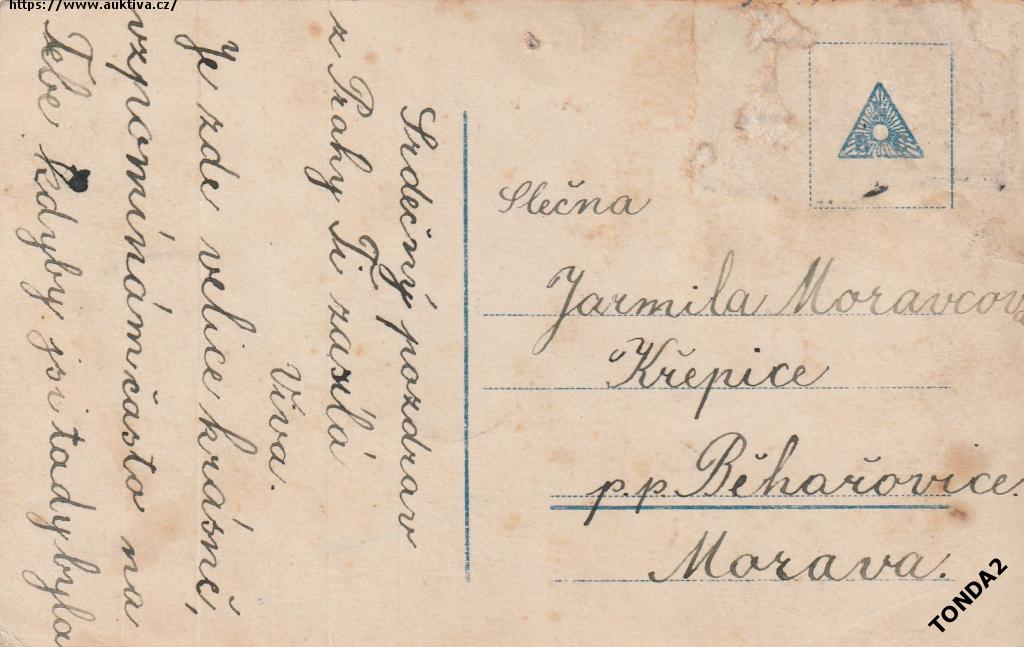 https://www.auktiva.cz/
Srdečný pozdrav
z Prahy Ti zasílá
Víva.
Je zde velice krásně,
vzpomínám často na
Tebe kdyby jsi tady byla
Slečna
Jarmila Moravcova
Křepice
p.p. Běhařovice.
Morava.
TONDA2